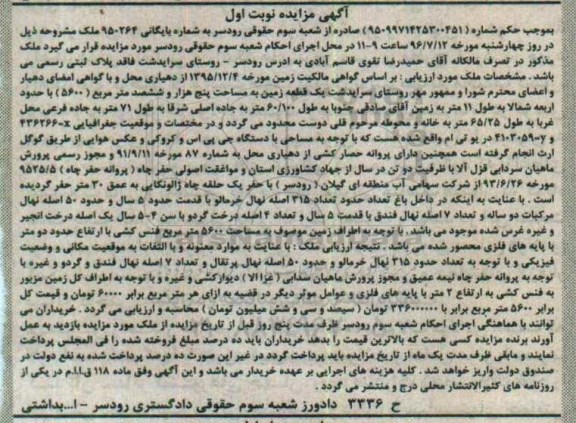 آگهی مزایده نوبت اول
بموجب حکم شماره (۹۵۰۹۹۷۱۴۲۵۳۰۰۴۵۱) صادره از شعبه سوم حقوقی رودسر به شماره بایگانی ۹۵۰۲۶۴ ملک مشروحه ذیل
در روز چهارشنبه مورخه ۹۶/۷/۱۲ ساعت ۹-۱۱ در محل اجرای احکام شعبه سوم حقوقی رودسر مورد مزایده قرار می گیرد ملک
مذکور در تصرف مالکانه آقای حمیدرضا تقوی قاسم آبادی به ادرس رودسر - روستای سرایدشت فاقد پلاک ثبتی رسمی می
باشد . مشخصات ملک مورد ارزیابی : بر اساس گواهی مالکیت زمین مورخه ۱۳۹۵/۱۲/۴ از دهیاری محل و با گواهی امضای دهیار
و اعضای محترم شورا و ممهور مهر روستای سرایدشت یک قطعه زمین به مساحت پنج هزار و ششصد متر مربع ( ۵۶۰۰ ) با حدود
اربعه شمالا به طول ۱۱ متر به زمین آقای صادقی جنوبا به طول ۶۰/۱۰۰ متر به جاده اصلی شرقا به طول ۷۱ متر به جاده فرعی محل
غربا به طول ۶۵/۲۵ متر به خانه و محوطه مرحوم قلی دوست محدود می گردد و در مختصات و موقعیت جغرافیایی x-۴۳۶۲۶۶
و y-۴۱۰۳۰۵۹ در یو تی ام واقع شده هست که با توجه به مساحی با دستگاه جی پی اس و کروکی و عکس هوایی از طریق گوگل
ارث انجام گرفته است همچنین دارای پروانه حصار کشی از دهیاری محل به شماره ۸۷ مورخه ۹۱/۹/۱۱ و مجوز رسمی پرورش
ماهیان سردابی قزل آلا با ظرفیت دو تن در سال از جهاد کشاورزی استان و موافقت اصولی حفر چاه ( پروانه حفر چاه ) ۹۵۲۵/۵
مورخه ۹۳/۶/۲۶ از شرکت سهامی آب منطقه ای گیلان ( رودسر ) با حفر یک حلقه چاه ژالونکایی به عمق ۳۰ متر حفر گردیده
است . با عنایت به اینکه در داخل باغ تعداد حدود تعداد ۳۱۵ اصله نهال خرمالو با قدمت حدود ۵ سال و حدود ۵۰ اصله نهال
مرکبات دو ساله و تعداد ۷ اصله نهال فندق با قدمت ۵ سال و تعداد ۴ اصله درخت گردو با سن ۴-۵ سال یک اصله درخت انجیر
و غیره غرس شده موجود می باشد . با توجه به اطراف زمین موصوف به مساحت ۵۶۰۰ متر مربع فنس کشی با ارتفاع حدود دو متر
با پایه های فلزی محصور شده می باشد . نتیجه ارزیابی ملک : با عنایت به موارد معنونه و با التفات به موقعیت مکانی و وضعیت
فیزیکی و با توجه به تعداد حدود ۳۱۵ نهال خرمالو و حدود ۵۰ اصله نهال پرتقال و تعداد ۷ اصله نهال فندق و گردو و غیره با
توجه به پروانه حفر چاه نیمه عمیق و مجوز پرورش ماهیان سدابی ( غزا الا ) دیوارکشی و غیره و با توجه به اطراف کل زمین مزبور
به فنس کشی به ارتفاع ۲ متر با پایه های فلزی و عوامل موثر دیگر در قضیه به ازای هر متر مربع برابر ۶۰۰۰۰ تومان و قیمت کل
برابر ۵۶۰۰ متر مربع برابر با ۳۳۶۰۰۰۰۰۰ تومان ( سیصد و سی و شش میلیون تومان ) محاسبه و ارزیابی می گردد . خریداران می
توانند با هماهنگی اجرای احکام شعبه سوم حقوقی رودسر ظرف مدت پنج روز قبل از تاریخ مزایده از ملک مورد مزایده بازدید به عمل
آورند برنده مزایده کسی هست که بالاترین قیمت را بدهد خریداران باید ده درصد مبلغ فروخته شده را فی المجلس پرداخت
نمایند و مابقی ظرف مدت یک ماه از تاریخ مزایده باید پرداخت گردد در غیر این صورت ده درصد پرداخت شده به نفع دولت در
صندوق دولت واریز خواهد شد . کلیه هزینه های اجرایی بر عهده خریدار می باشد و این آگهی وفق ماده ۱۱۸ ق.ا.م در یکی از
روزنامه های کثیرالانتشار محلی درج و منتشر می گردد .
ح ۳۳۳۶ دادورز شعبه سوم حقوقی دادگستری رودسر - ا...بداشتی